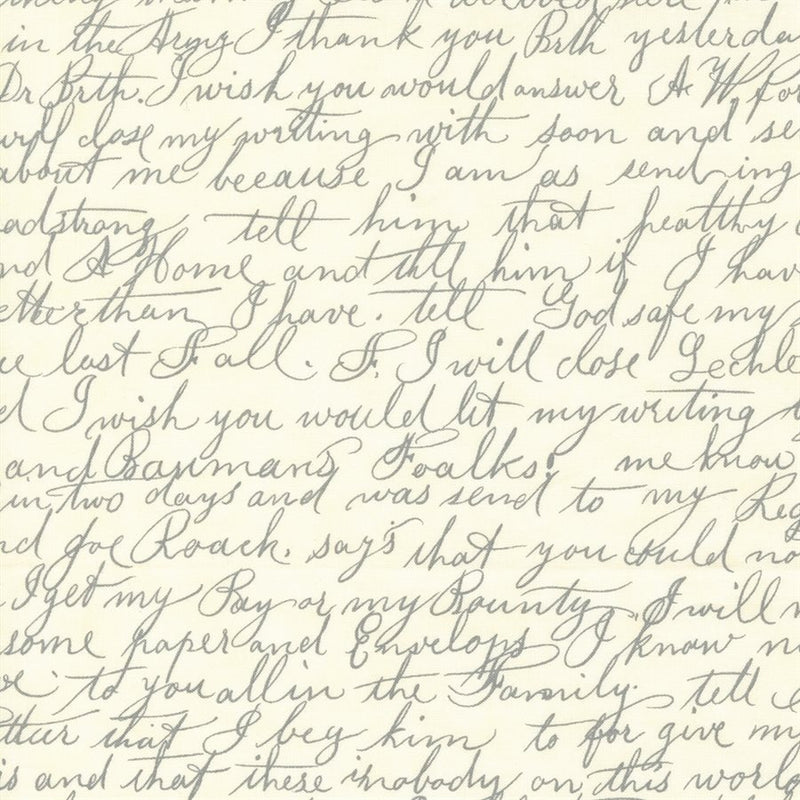 in the Army I thank you Brth yesterda
Dr Brth. I wish you would answer A W. for
will close my writing with soon and se
about me beeause I am as send ing
adstrong tell him that healthy
nd A Home and till him if I hav
etter than I have. tell God safe my
ue last F all. F. I will close Lechle
d I wish you would let my writing
and Bauman's Foalks. me know
in two days and was send to my Reg
nd Joe Roack. say's that you could no
I get my Pay or my Bounty. I will
some paper and Envelops I know n
to you all in the Family. tell
that I beg him to for give my
is and that these is nobody on this world